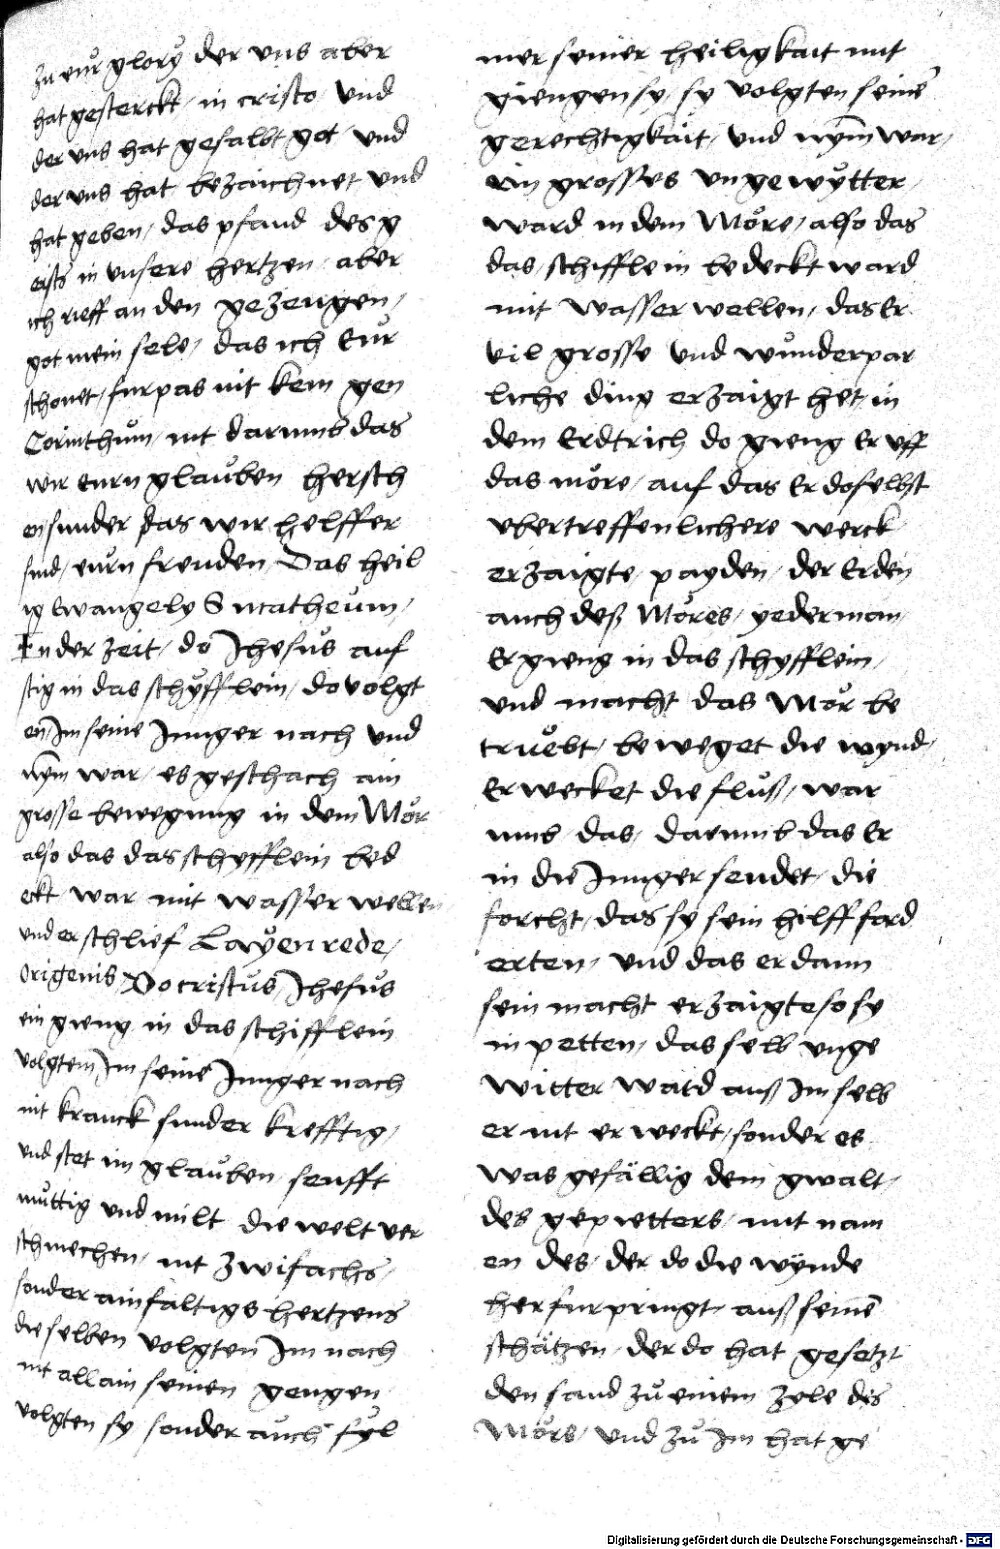 zu eur glory der uns aber
hat gesterckt / in cristo / Vnd
der uns hat gesalbt got / vnd
der uns hat bezaichnet vnd
hat geben / das pfand des g
eists in vnsere hertzen / aber
ich rieff an den gezeugen /
got mein sele / das ich Eur
schonet / furpas nit kem gen
Corinthum / nit darumb das
wir eurn glauben hersch
en sunder das wir helffer
sind / eurn freuden / Das heil
ig Ewangely S matheum /
In der zeit / do Jhesus auf
stig in das schyfflein / do volgt
en Im seine Junger nach vnd
nym war / es geschach ain
grosse bewegung in dem Mör
also das das schyfflein bed
eckt war mit wasser wellen
vnd er schlief Layenrede /
Origenis / Do cristus / Jhesus
ein gieng in das schifflein
volgten Im seine Junger nach
nit kranck sunder krefftig /
vnd stet im glauben / senfft
muttig vnd milt die welt ver
schmechen / nit zwifachs /
sonder ainfaltigs hertzens
die selben volgten Im nach
nit allain seinen gengen
volgten sy sonder auch fyl
mer seiner heiligkait mit
giengen sy / sy volgten seine
gerechtigkait / vnd nym war /
ein grosses vngewytter /
ward in dem Möre / also das
das / schifflein bedeckt ward
mit wasser wellen / das Er
vil grosse vnd wunderpar
liche ding erzaigt het / in
dem Erdtrich do gieng Er uff
das möre / auf das Er doselbst
vbertreffenlichere werck
erzaigte / payden / der Erden
auch deß Möres / yederman /
Er gieng in das schyfflein /
vnd macht das Mör be
truebt / beweget die wynd /
Erwecket die fluß / war
umb das / darumb das Er
in die Junger sendet / die
forcht / das sy sein hilff ford
erten / vnd das er dann
sein macht erzaigte so sy
in petten / das selb vnge
witter ward auß Im selb
er nit erweckt / sonder es
was gefällig dem gwalt /
des gepietters / mit nam
en des / der do die wynde
herfurpringt / auß seine
schätzen / der do hat gesetzt
den sand zu einem zyle des
Mörs / vnd zu Im hat ge
Digitalisierung gefördert durch die Deutsche Forschungsgemeinschaft - DFG